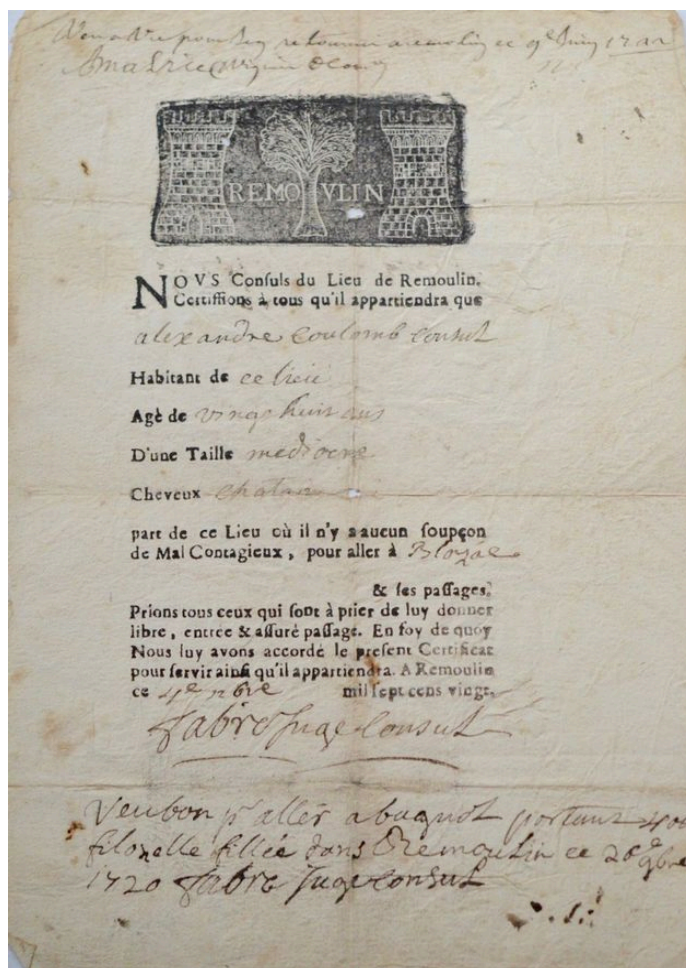 REMOULIN
NOVS Conſuls du Lieu de Remoulin.
Certiffions à tous qu'il appartiendra que
alexandre Coulomb Consul
Habitant de ce lieu
Agè de vingt huit ans
D'une Taille mediocre
Cheveux chatain
part de ce Lieu où il n'y a aucun ſoupçon
de Mal Contagieux, pour aller à Blozac
& ſes paſſages.
Prions tous ceux qui ſont à prier de luy donner
libre, entrée & aſſuré paſſage. En foy de quoy
Nous luy avons accordé le preſent Certificat
pour ſervir ainſi qu'il appartiendra. A Remoulin
ce 4e 9bre mil ſept cens vingt.
fabre Juge Consul
Veu bon pr aller a portant 400
filozelle fillée dans Remoulin ce 26e 9bre
1720 fabre Juge Consul